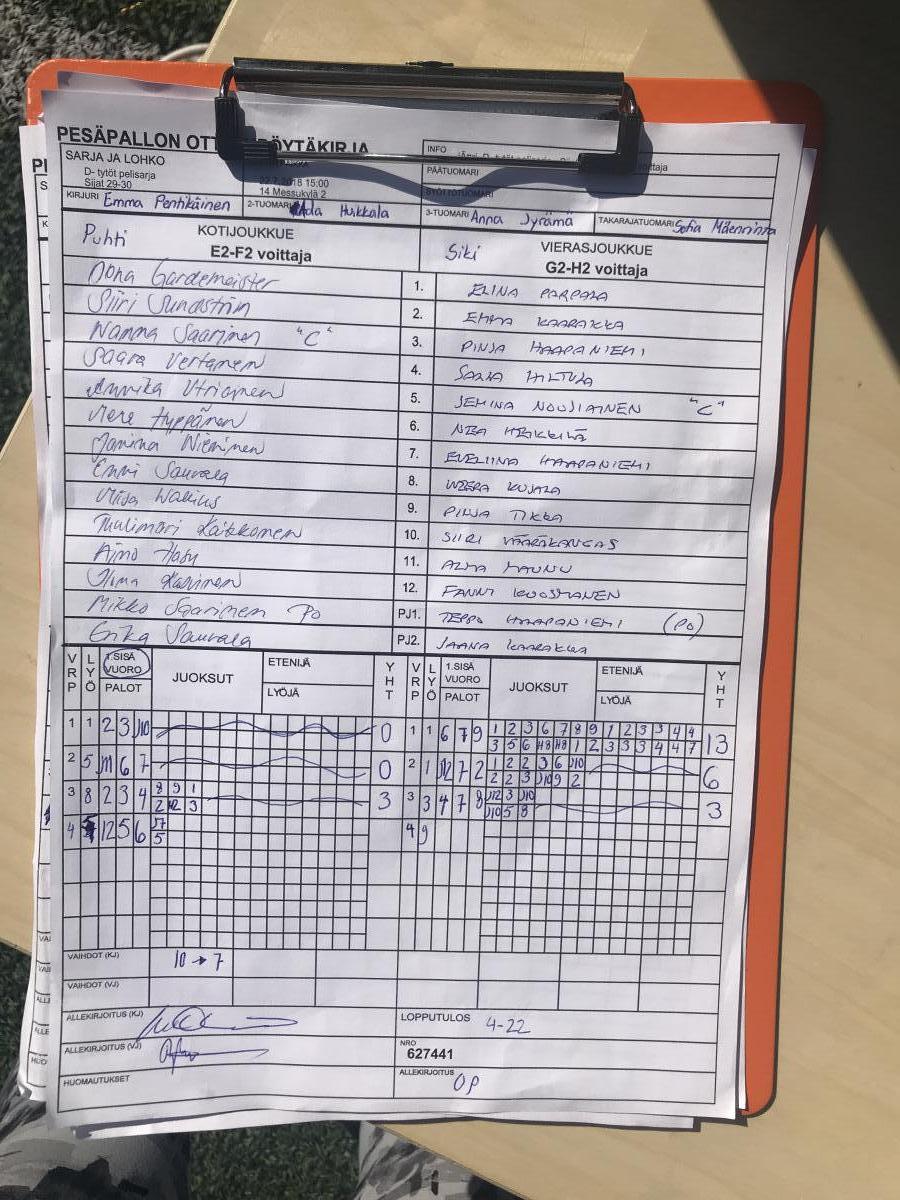 PESÄPALLON OTT ÖYTÄKIRJA
SARJA JA LOHKO
D- tytöt pelisarja
Sijat 29-30
2018 15:00
14 Messukylä 2
INFO
voittaja
PÄÄTUOMARI
SYÖTTÖTUOMARI
KIRJURI Emma Pentikäinen
2-TUOMARI Ada Huikkala
3-TUOMARI Anna Jyrämä
TAKARAJATUOMARI Sofia
Puhti KOTIJOUKKUE
E2-F2 voittaja
Siki VIERASJOUKKUE
G2-H2 voittaja
Gardemeister 1. ELINA PARPALA
Siiri Sundström 2. EMMA KAARAKKA
Saarinen "C" 3. PINJA HAAPANIEMI
Saara Vertanen 4. SARJA HILTULA
Annika Utriainen 5. JEMINA NOUSIAINEN "C"
Hyppänen 6. NEA HEIKKILÄ
Janina Nieminen 7. EVELIINA HAAPANIEMI
Enni Saurala 8. WEERA KUJALA
Wallius 9. PINJA TIKKA
Tuulimari Kaikkonen 10. SIIRI VÄÄRÄKANGAS
Aino 11. ALMA MAUNU
Karinen 12. FANNI KUOSMANEN
Mikko Saarinen PO PJ1. TEPPO HAAPANIEMI (PO)
Erika Saurala PJ2. JAANA KAARAKKA
VRP LYÖ 1.SISÄ VUORO PALOT JUOKSUT ETENIJÄ LYÖJÄ YHT VRP LYÖ 1.SISÄ VUORO PALOT JUOKSUT ETENIJÄ LYÖJÄ YHT
1 1 2 3 J10 0 1 1 6 7 9 1 2 3 6 7 8 9 1 2 3 3 4 4 13
3 5 6 1 2 3 3 3 4 4 7
2 5 6 7 0 2 1 J12 7 2 1 2 2 3 6 J10 6
2 2 3 J10 9 2
3 8 2 3 4 8 9 1 3 3 3 4 7 8 J12 3 J10 3
2 12 3 J10 5 8
4 12 5 6 J7 4 9
5
VAIHDOT (KJ) 10 → 7
VAIHDOT (VJ)
ALLEKIRJOITUS (KJ)
LOPPUTULOS 4-22
ALLEKIRJOITUS (VJ)
NRO
627441
HUOMAUTUKSET
ALLEKIRJOITUS OP